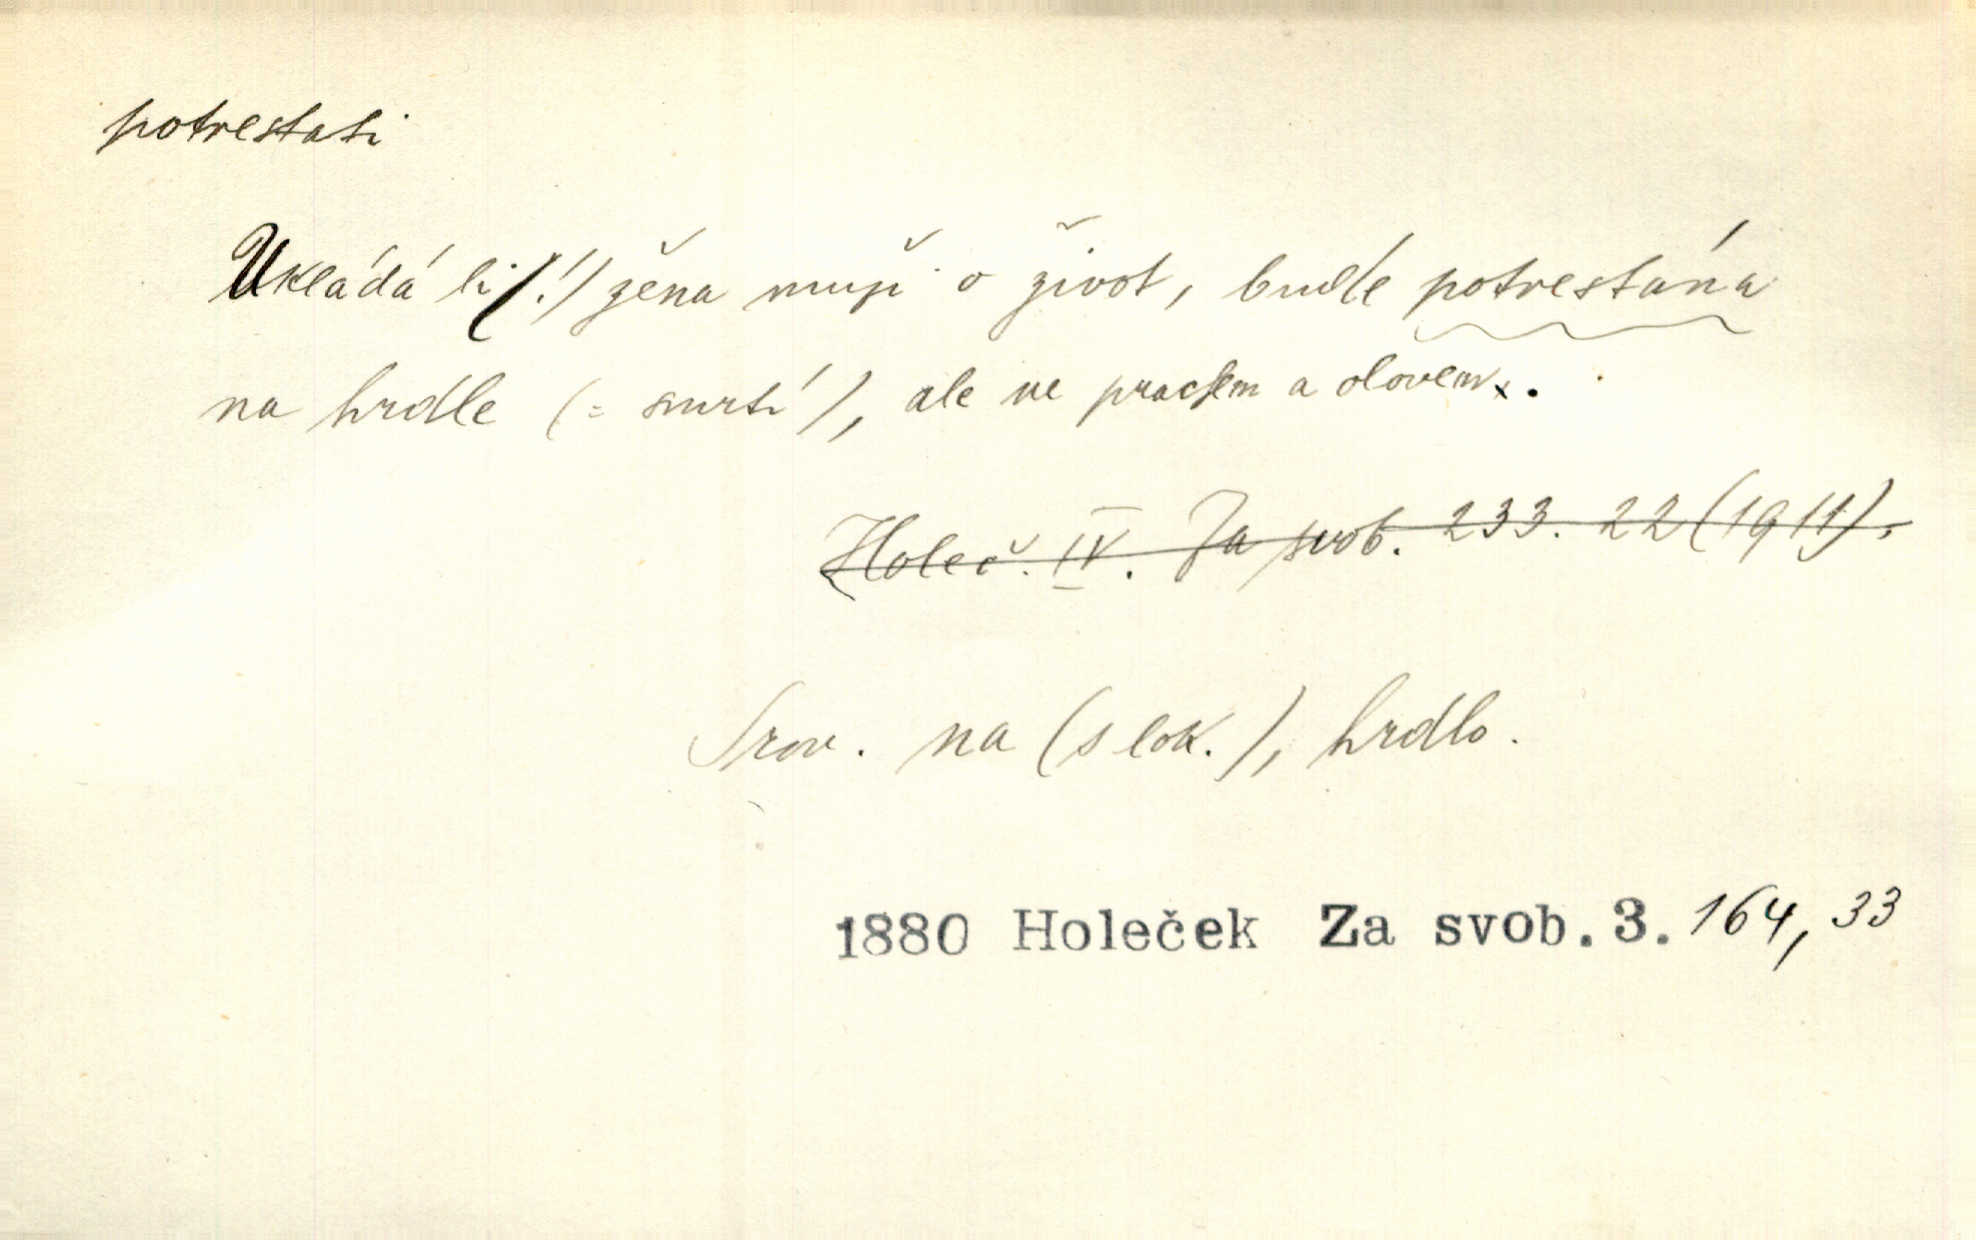 potrestati
Ukládá li (!) žena muži o život, bude potrestána
na hrdle (= smrtí), ale ne prachem a olovem.
Holeč. IV. Za svob. 233. 22 (1911).
Srov. na (s lok.), hrdlo.
1880 Holeček Za svob. 3. 164, 33